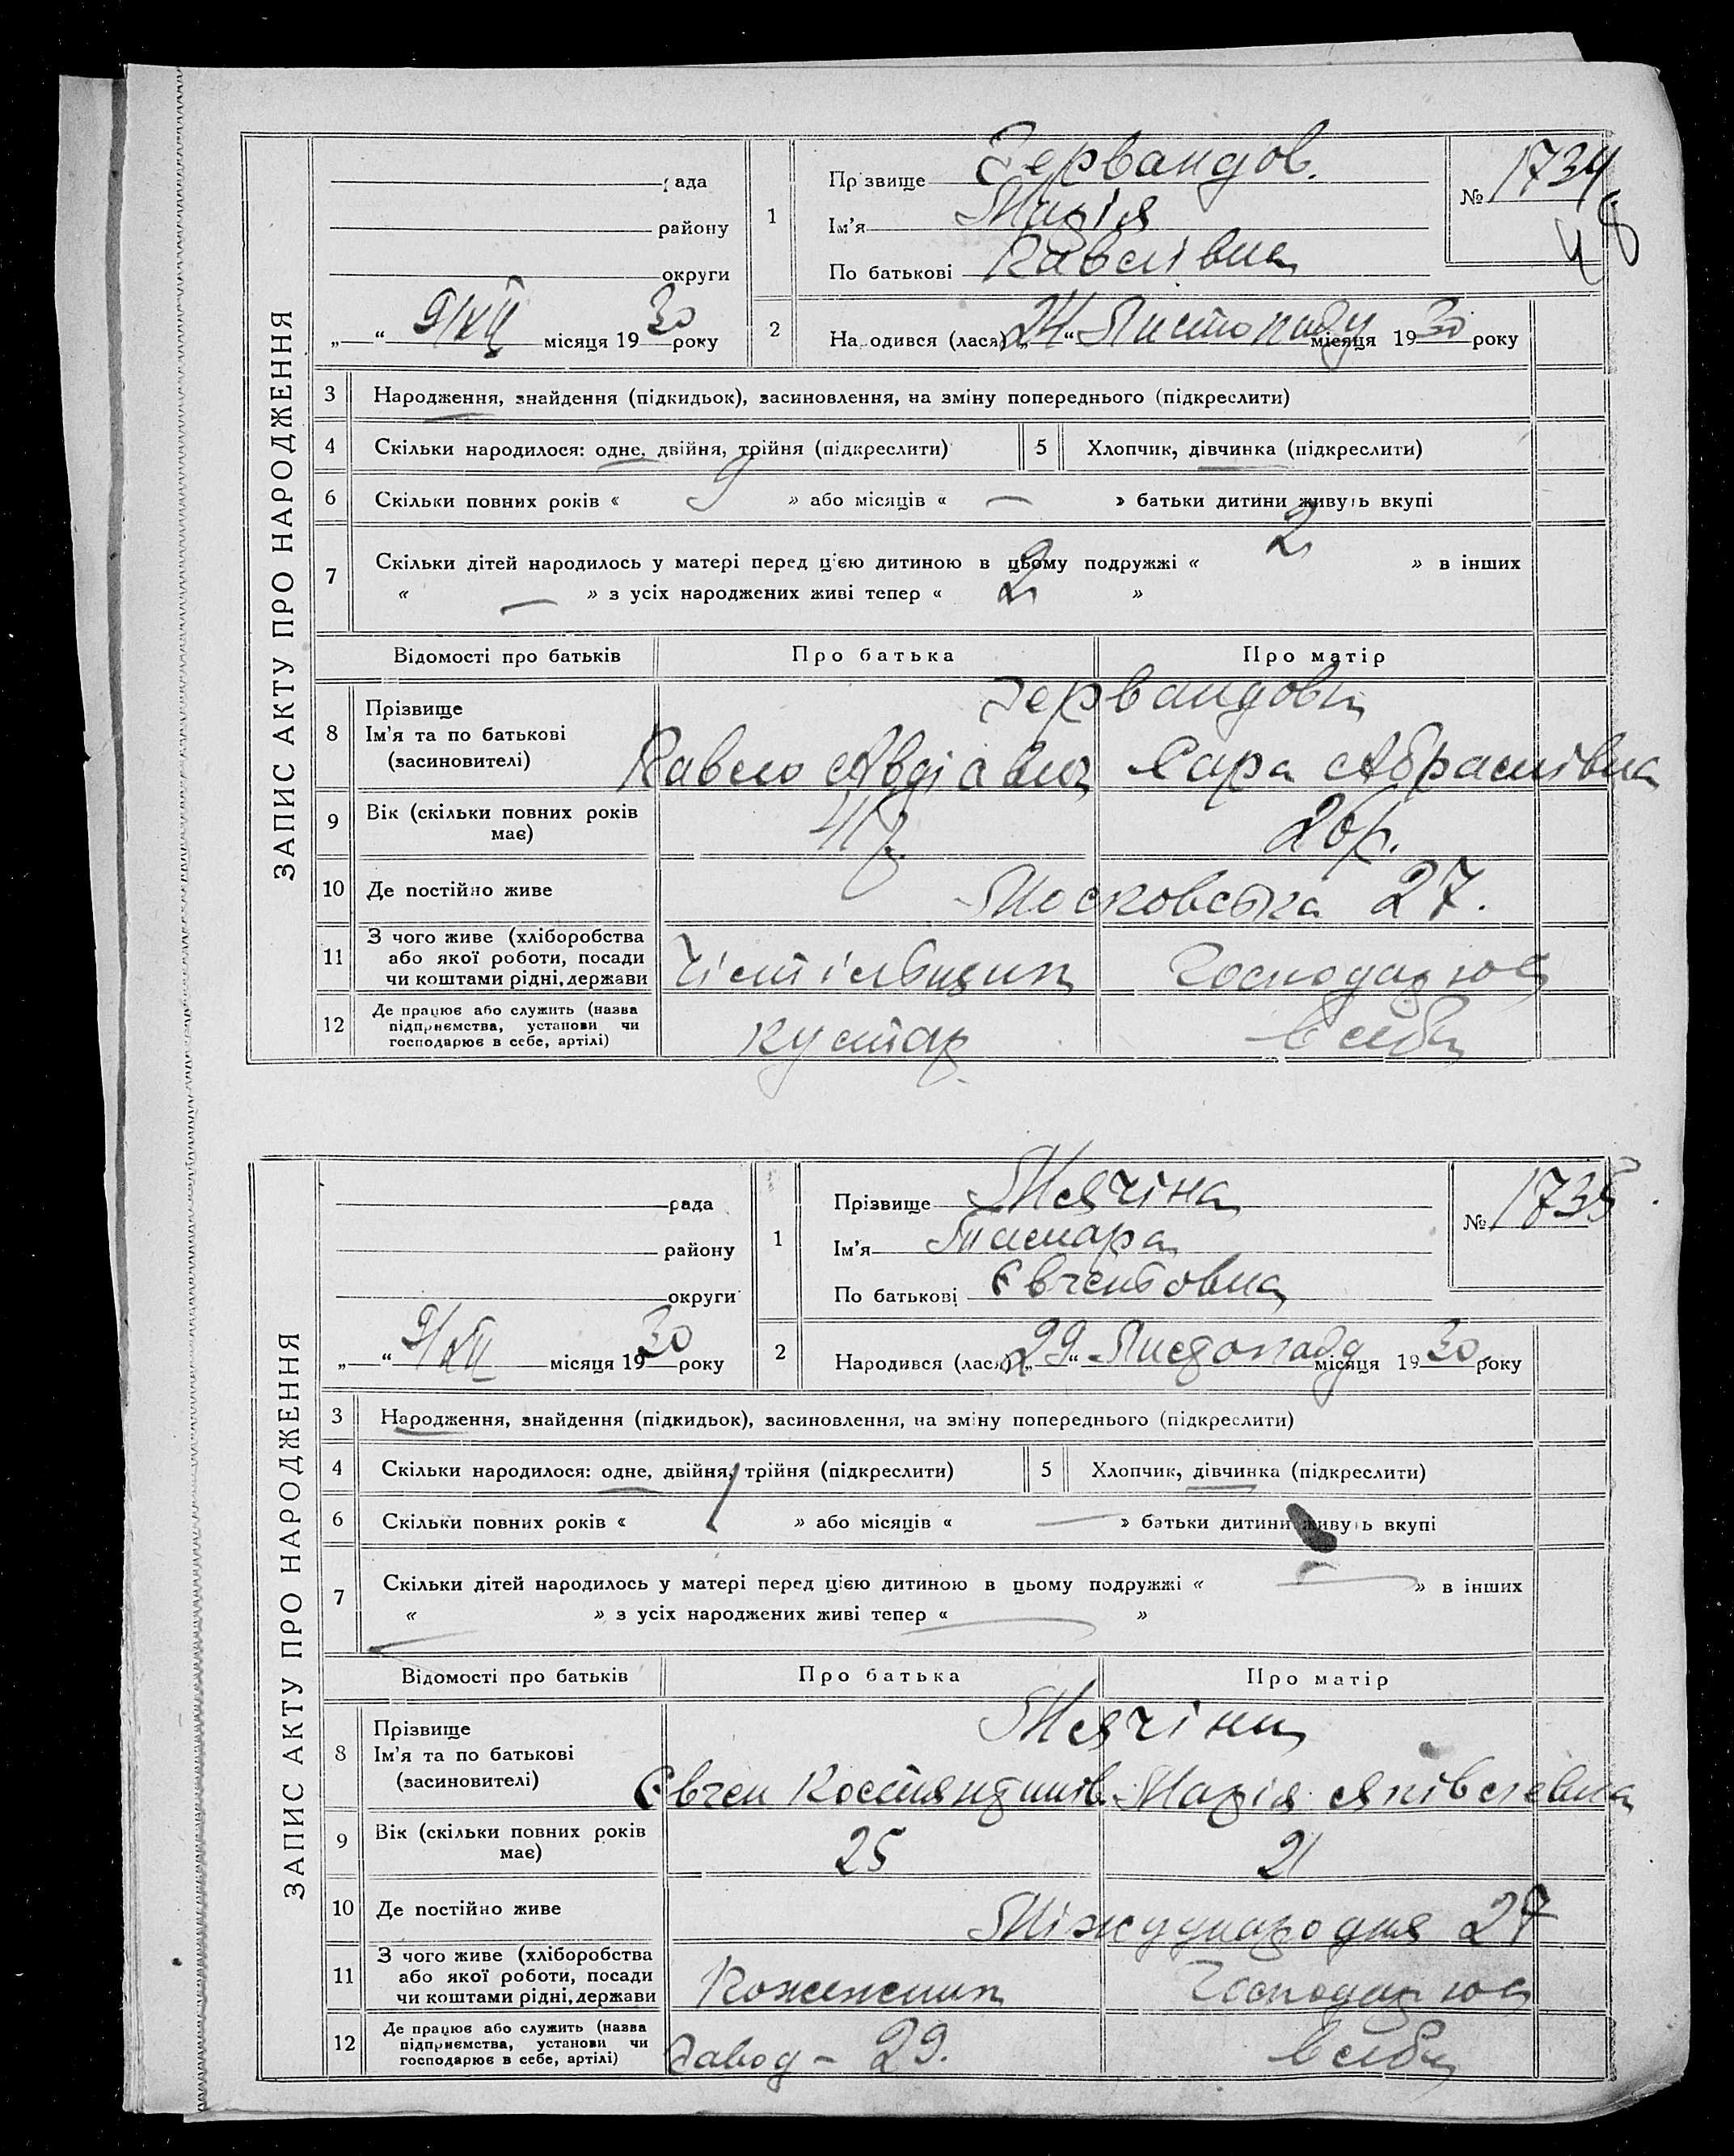 ЗАПИС АКТУ ПРО НАРОДЖЕННЯ
рада
району
округи
9/XII місяця 1930 року
1
Прізвище Зервандов.
Ім'я Марія
По батькові Павлівна
№ 1734
48
2
Народився (лася) „24“ Листопаду місяця 1930 року
3 Народження, знайдення (підкидьок), засиновлення, на зміну попереднього (підкреслити)
4 Скільки народилося: одне, двійня, трійня (підкреслити) 5 Хлопчик, дівчинка (підкреслити)
6 Скільки повних років « 9 » або місяців « — » батьки дитини живуть вкупі
7 Скільки дітей народилось у матері перед цією дитиною в цьому подружжі « 2 » в інших
« — » з усіх народжених живі тепер « 2 »
Відомості про батьків Про батька Про матір
8 Прізвище
Ім'я та по батькові
(засиновителі)
Зервандови
Павло Сара Абрамівна
9 Вік (скільки повних років має) 26 р.
10 Де постійно живе Московська 27.
11 З чого живе (хліборобства
або якої роботи, посади
чи коштами рідні, держави
12 Де працює або служить (назва
підприємства, установи чи
господарює в себе, артілі)
кустар в себе
ЗАПИС АКТУ ПРО НАРОДЖЕННЯ
рада
району
округи
9/XII місяця 1930 року
1
Прізвище Мячіна
Ім'я Тамара
По батькові
№ 1735
2
Народився (лася) „29“ місяця 1930 року
3 Народження, знайдення (підкидьок), засиновлення, на зміну попереднього (підкреслити)
4 Скільки народилося: одне, двійня, трійня (підкреслити) 5 Хлопчик, дівчинка (підкреслити)
6 Скільки повних років « 1 » або місяців « — » батьки дитини живуть вкупі
7 Скільки дітей народилось у матері перед цією дитиною в цьому подружжі « — » в інших
« » з усіх народжених живі тепер « — »
Відомості про батьків Про батька Про матір
8 Прізвище
Ім'я та по батькові
(засиновителі)
Мячіни
Євген Марія
9 Вік (скільки повних років має) 25 21
10 Де постійно живе 27
11 З чого живе (хліборобства
або якої роботи, посади
чи коштами рідні, держави
12 Де працює або служить (назва
підприємства, установи чи
господарює в себе, артілі)
Завод – 29. в себе